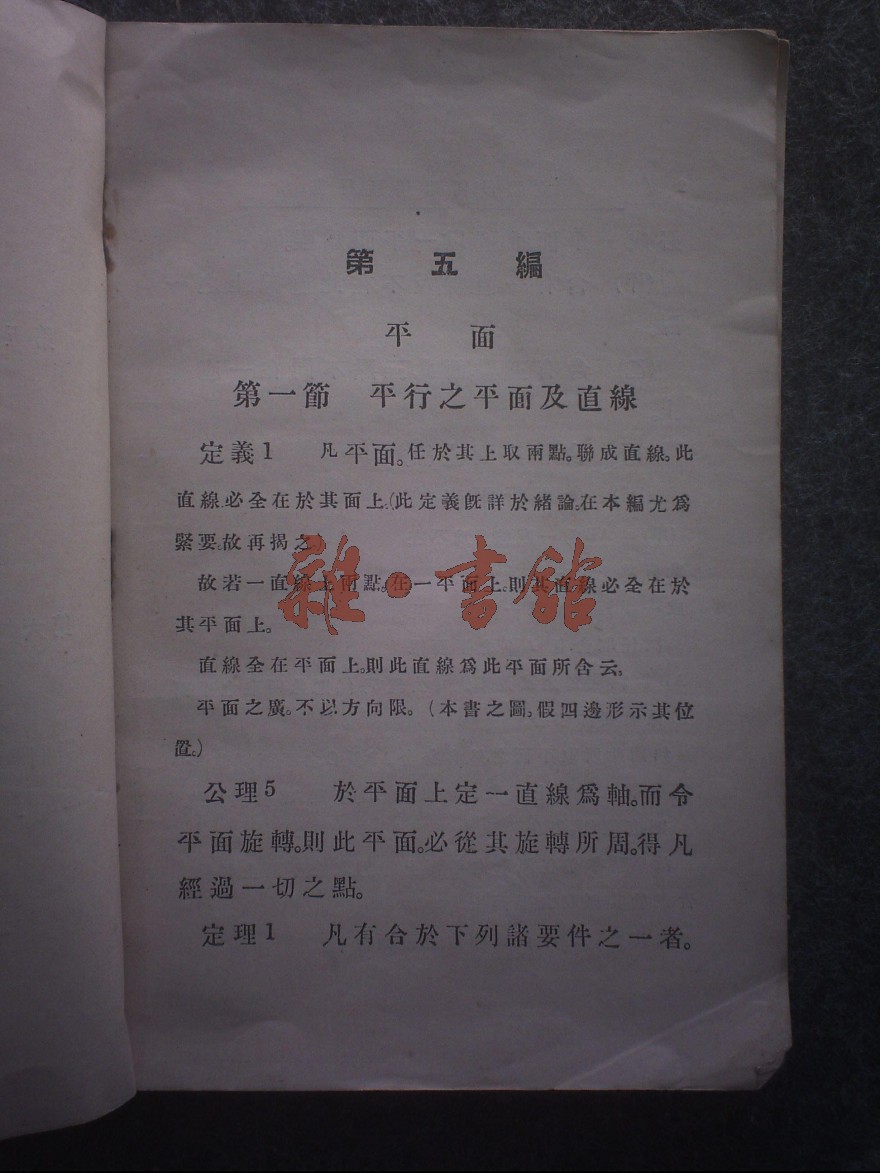 第五編
平面
第一節 平行之平面及直線
定義1 凡平面。任於其上取兩點。聯成直線。此
直線必全在於其面上。(此定義旣詳於緒論。在本編尤爲
緊要。故再揭之
故若一直線上兩點。在一平面上。則其直線必全在於
其平面上。
直線全在平面上。則此直線爲此平面所含云。
平面之廣。不以方向限。(本書之圖。假四邊形示其位
置。)
公理5 於平面上定一直線爲軸。而令
平面旋轉。則此平面。必從其旋轉所周。得凡
經過一切之點。
定理1 凡有合於下列諸要件之一者。
雜·書館